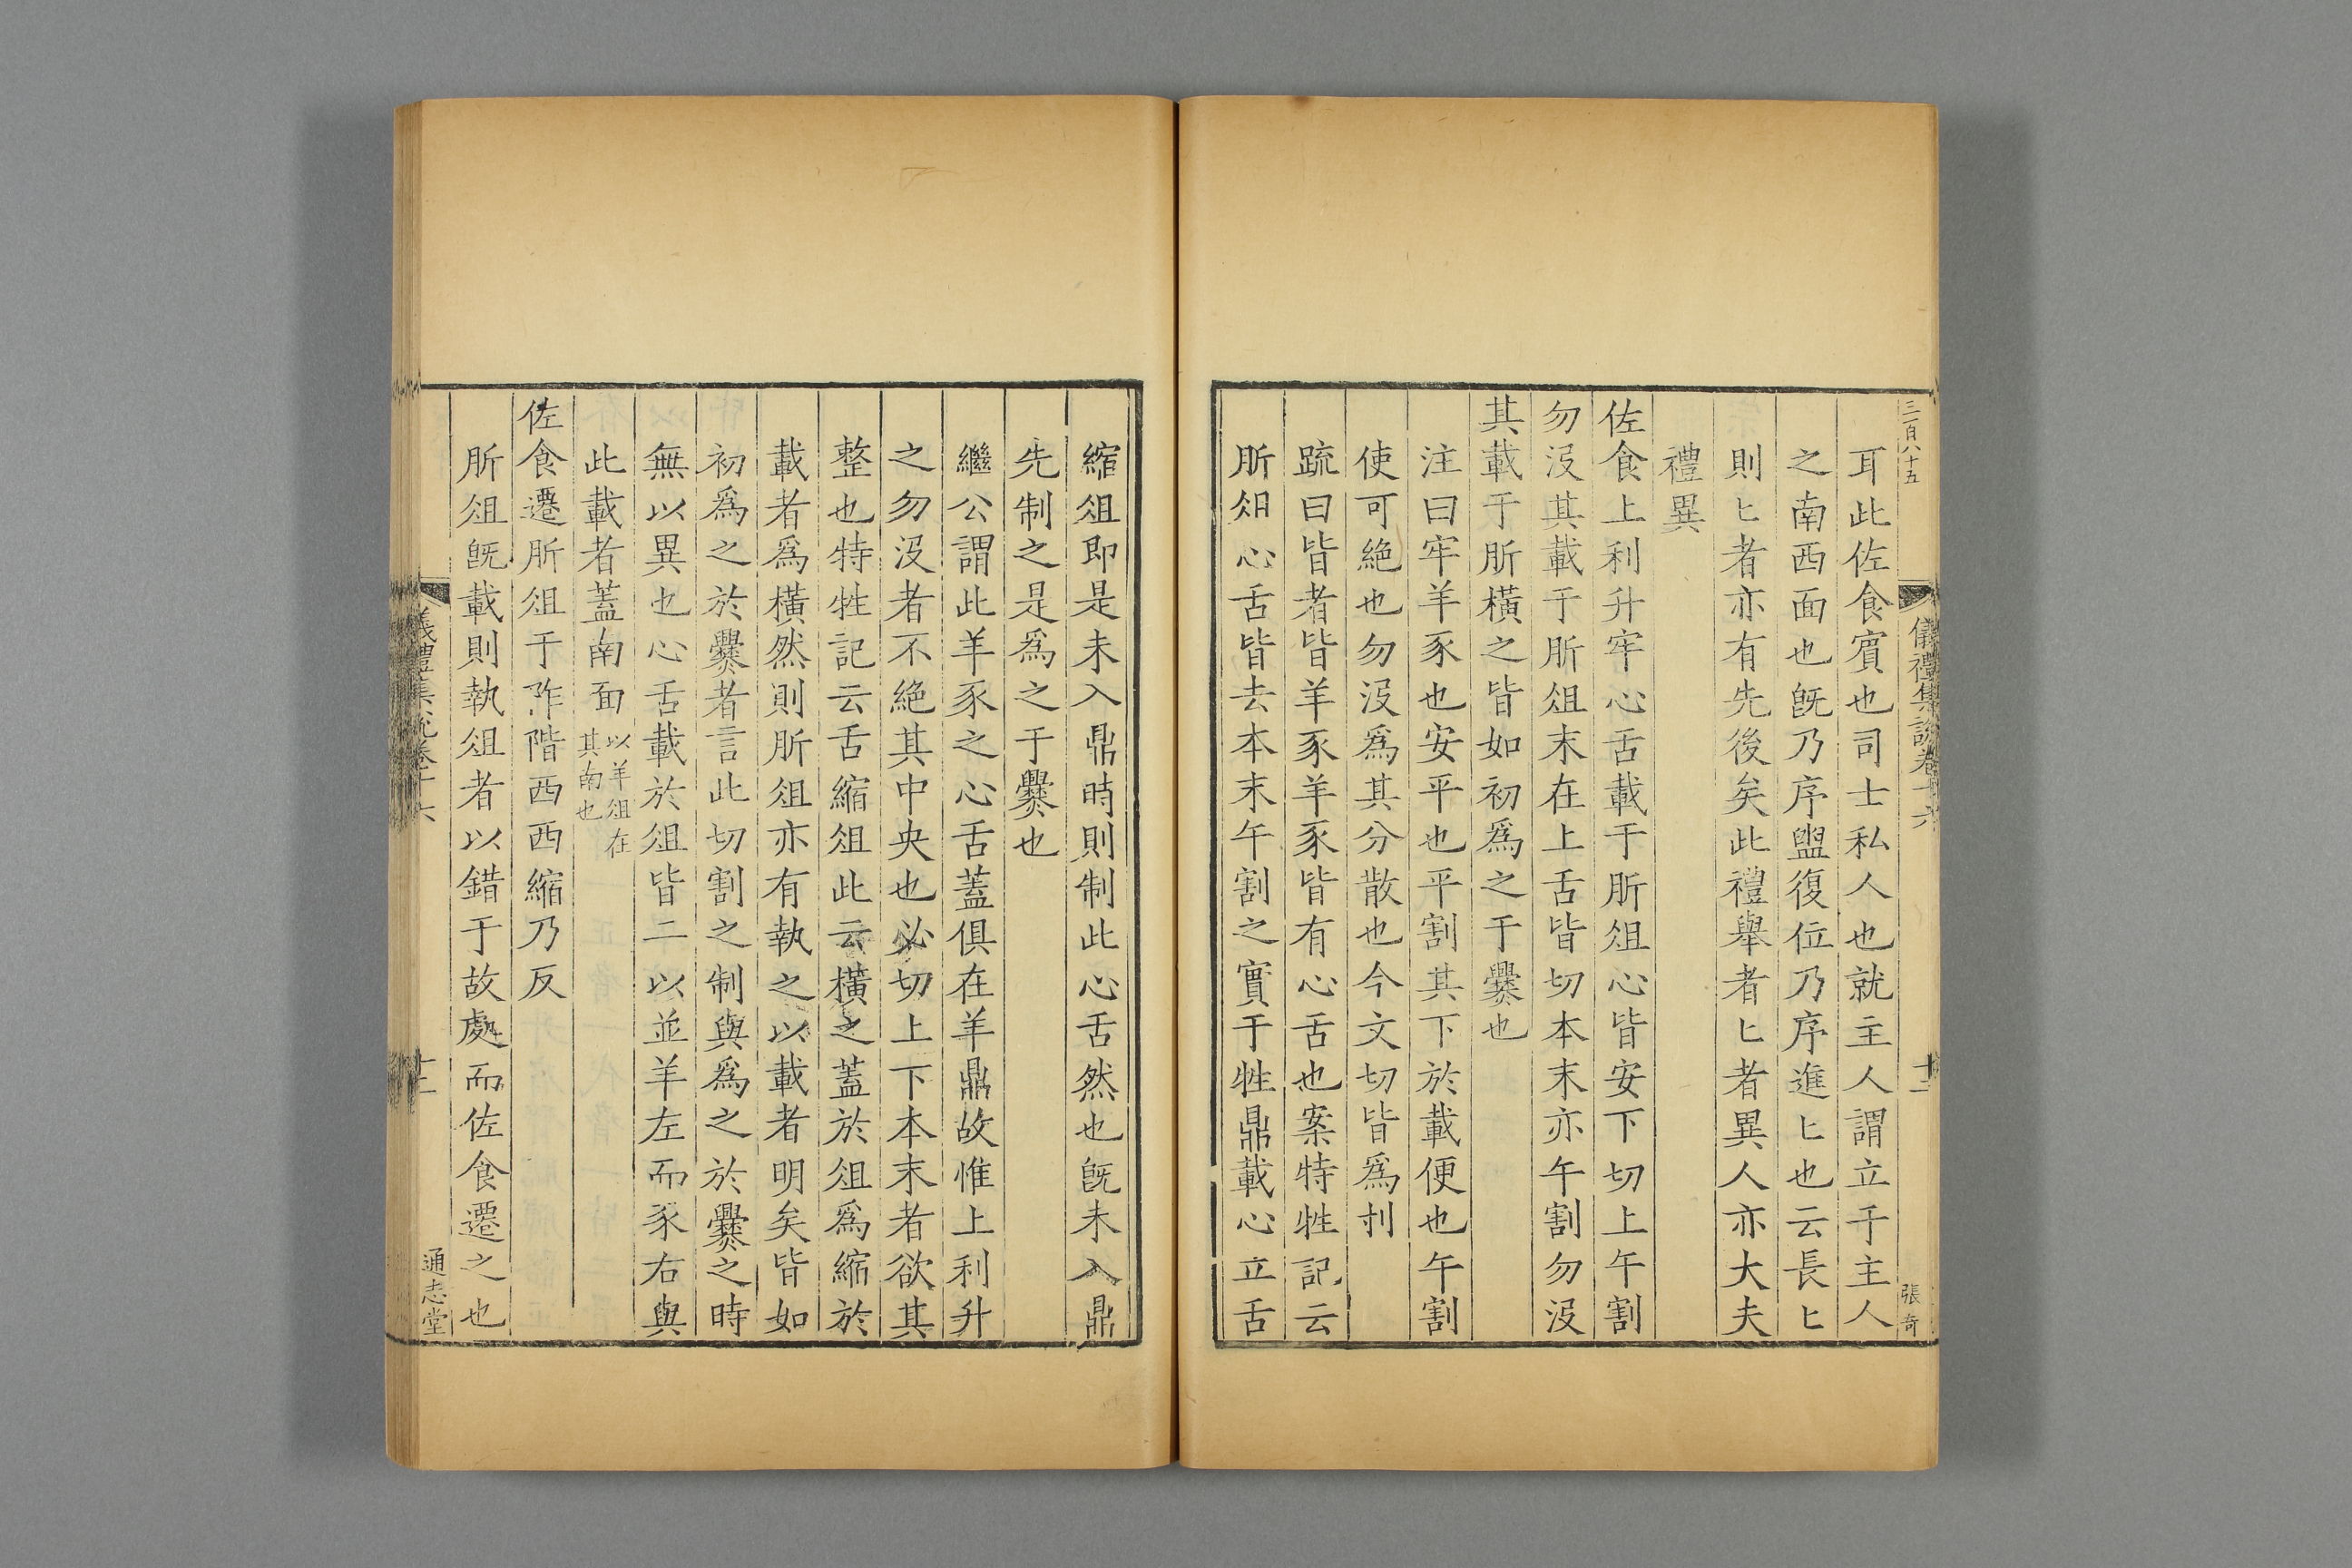 三百八十五
儀禮集說卷十六
十二
張奇
耳此佐食賓也司士私人也就主人謂立于主人
之南西面也旣乃序盥復位乃序進匕也云長匕
則匕者亦有先後矣此禮舉者匕者異人亦大夫
禮異
佐食上利升牢心舌載于肵俎心皆安下切上午割
勿沒其載于肵俎末在上舌皆切本末亦午割勿沒
其載于肵橫之皆如初爲之于爨也
注曰牢羊豕也安平也平割其下於載便也午割
使可絕也勿沒爲其分散也今文切皆爲刌
疏曰皆者皆羊豕羊豕皆有心舌也案特牲記云
肵俎心舌皆去本末午割之實于牲鼎載心立舌
縮俎卽是未入鼎時則制此心舌然也旣未入鼎
先制之是爲之于爨也
繼公謂此羊豕之心舌蓋俱在羊鼎故惟上利升
之勿沒者不絕其中央也必切上下本末者欲其
整也特牲記云舌縮俎此云橫之蓋於俎爲縮於
載者爲橫然則肵俎亦有執之以載者明矣皆如
初爲之於爨者言此切割之制與爲之於爨之時
無以異也心舌載於俎皆二以並羊左而豕右與
此載者蓋南面以羊俎在其南也
佐食遷肵俎于阼階西西縮乃反
肵俎旣載則執俎者以錯于故處而佐食遷之也
儀禮集說卷十六
十二
通志堂